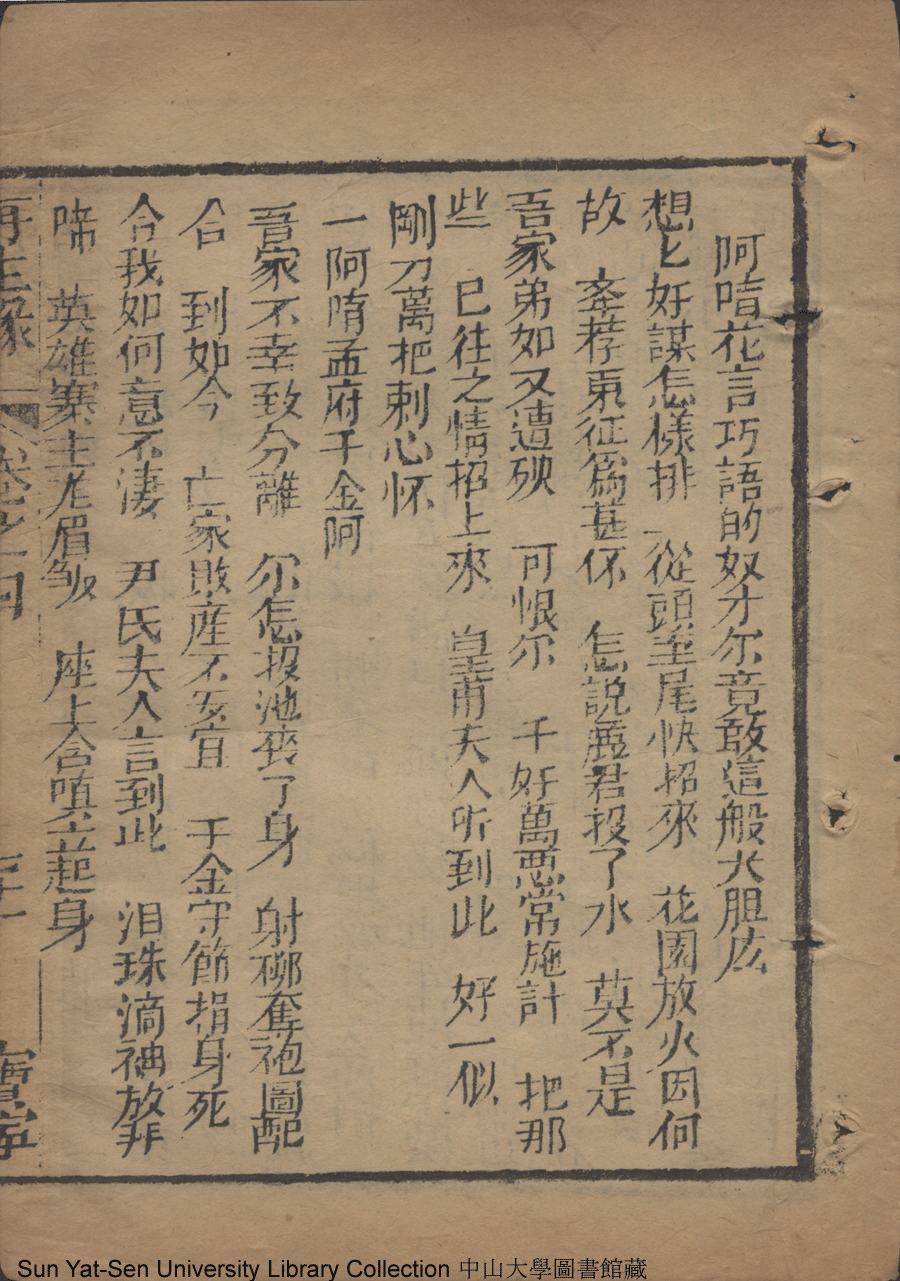 阿唷花言巧語的奴才尔竟敢這般大胆広
想匕好謀怎樣排　從頭至尾快招來　花園放火因何
故　奎荐東征為甚怀　怎説麗君投了水　莫不是
吾家弟如又遭殃　可恨尔　千好萬悪常施計　把那
些　已往之情招上來　皇甫夫人听到此　好一似
剛刀萬把剌心怀
一阿唷孟府千金阿
吾家不幸致分離　尔怎投池喪了身　射柳奪袍圖配
合　到如今　亡家敗産不安宜　千金守節捐身死
合我如何意不淒　尹氏夫人言到此　泪珠滴袖放非
啼　英雄寨主尨眉皱　座上含嗔立起身
再生縁　卷之四　
Sun Yat-Sen University Library Collection 中山大學圖書館藏